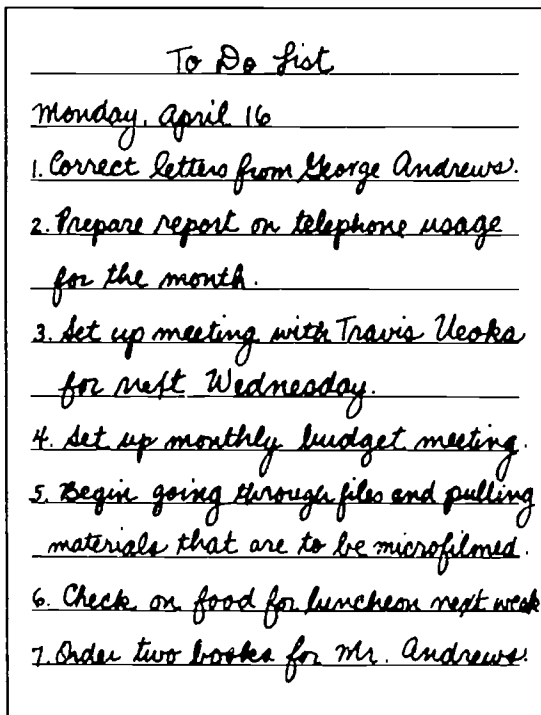 To Do List
Monday, April 16
1. Correct letters from George Andrews.
2. Prepare report on telephone usage
for the month.
3. Set up meeting with Travis Ueoka
for next Wednesday.
4. Set up monthly budget meeting.
5. Begin going through files and pulling
materials that are to be microfilmed.
6. Check on food for luncheon next week
7. Order two books for Mr. Andrews.